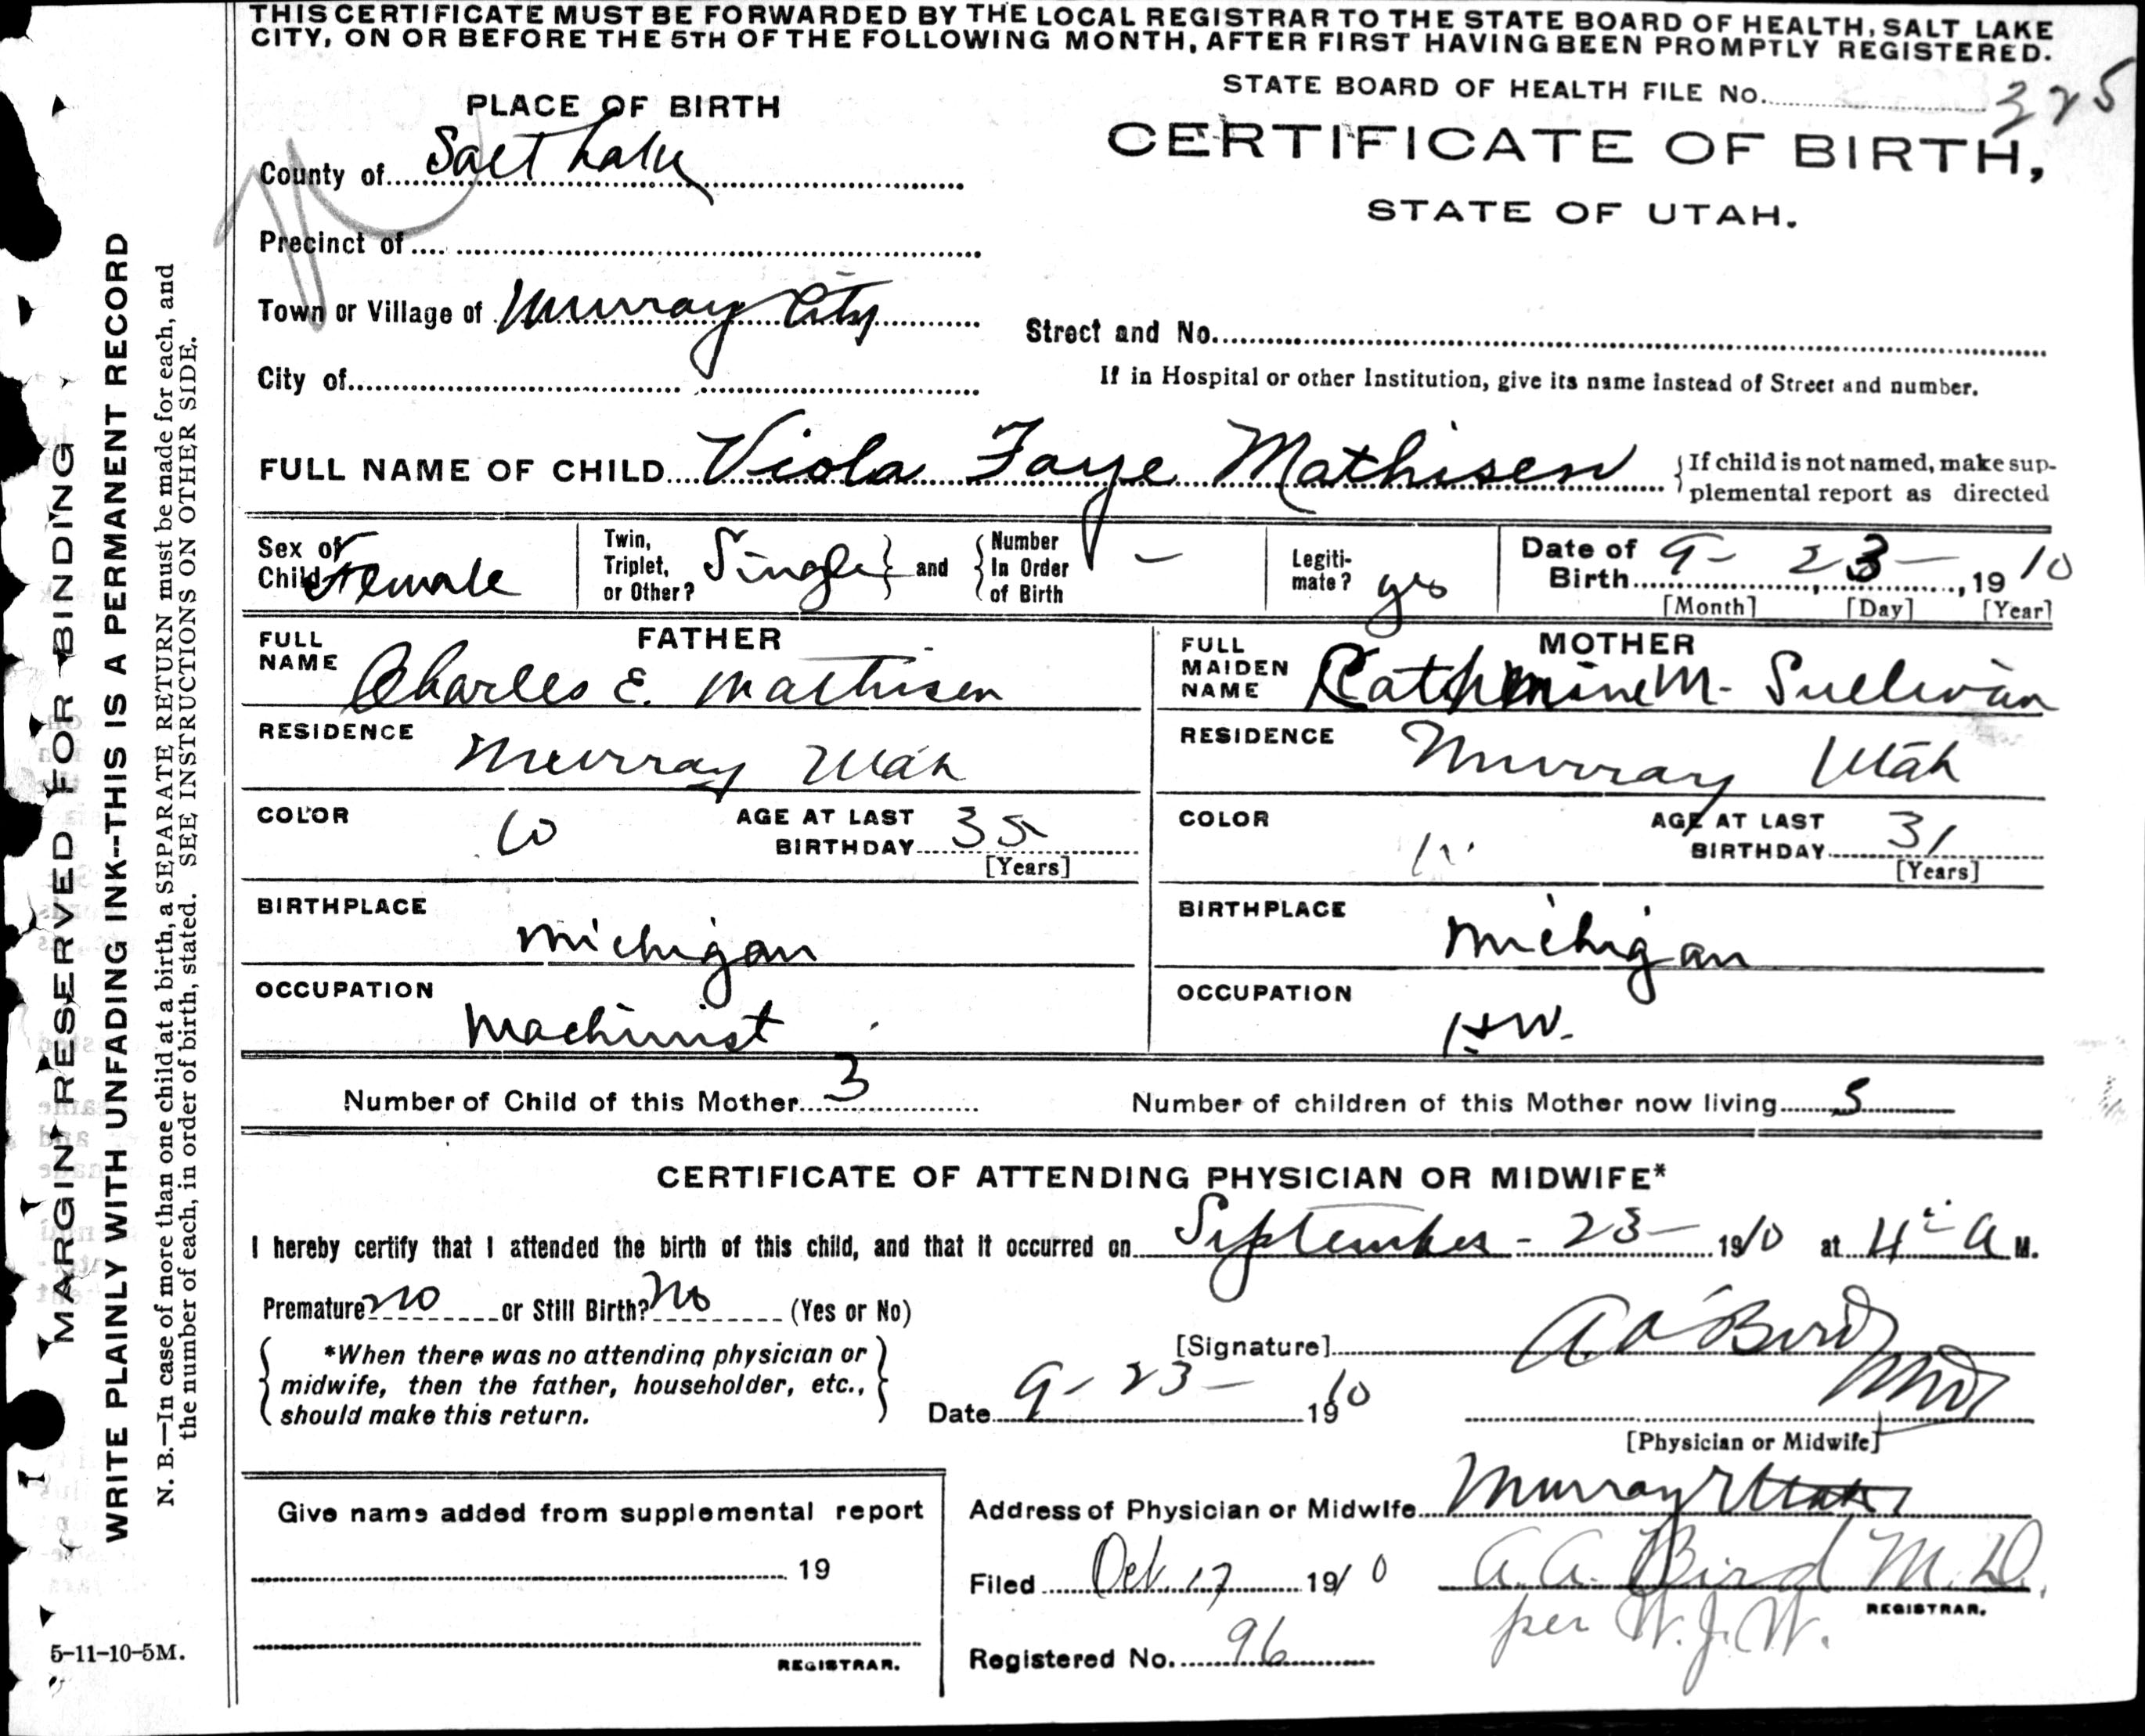 THIS CERTIFICATE MUST BE FORWARDED BY THE LOCAL REGISTRAR TO THE STATE BOARD OF HEALTH, SALT LAKE
CITY, ON OR BEFORE THE 5TH OF THE FOLLOWING MONTH, AFTER FIRST HAVING BEEN PROMPTLY REGISTERED.
STATE BOARD OF HEALTH FILE No. 325
PLACE OF BIRTH
CERTIFICATE OF BIRTH,
STATE OF UTAH.
County of Salt Lake
Precinct of
Town or Village of Murray City
Street and No.
City of
If in Hospital or other Institution, give its name instead of Street and number.
FULL NAME OF CHILD Viola Faye Mathisen
If child is not named, make sup-
plemental report as directed
Sex of Child Female
Twin, Triplet, or Other? Single and
Number In Order of Birth -
Legiti-mate? yes
Date of Birth 9 - 23 -, 1910
[Month] [Day] [Year]
FATHER
FULL NAME Charles E. Mathisen
RESIDENCE Murray Utah
COLOR W
AGE AT LAST BIRTHDAY 35
[Years]
BIRTHPLACE Michigan
OCCUPATION Machinist
MOTHER
FULL MAIDEN NAME Catherine M. Sullivan
RESIDENCE Murray Utah
COLOR
AGE AT LAST BIRTHDAY 31
[Years]
BIRTHPLACE Michigan
OCCUPATION H.W.
Number of Child of this Mother 3
Number of children of this Mother now living
CERTIFICATE OF ATTENDING PHYSICIAN OR MIDWIFE*
I hereby certify that I attended the birth of this child, and that it occurred on September - 23 - 1910 at 4 A M.
Premature no or Still Birth? No (Yes or No)
*When there was no attending physician or
midwife, then the father, householder, etc.,
should make this return.
[Signature] A A Bird
MD
[Physician or Midwife]
Date 9 - 23 - 1910
Give name added from supplemental report
19
REGISTRAR.
Address of Physician or Midwife Murray Utah
Filed Oct. 17 1910
A. A. Bird M. D.
REGISTRAR.
per W. J. W.
Registered No. 96
MARGIN RESERVED FOR BINDING
WRITE PLAINLY WITH UNFADING INK--THIS IS A PERMANENT RECORD
N. B.—In case of more than one child at a birth, a SEPARATE RETURN must be made for each, and
the number of each, in order of birth, stated. SEE INSTRUCTIONS ON OTHER SIDE.
5-11-10-5M.